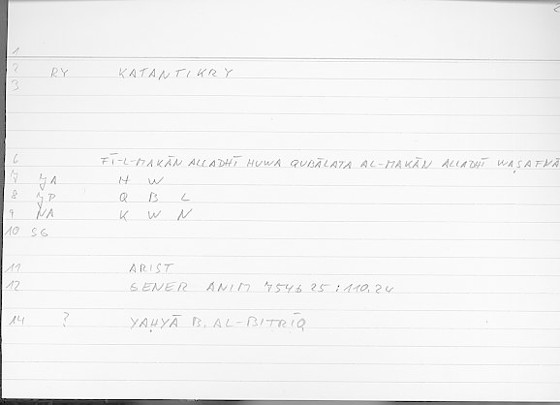 1
2 RY KATANTIKRY
3
6 FĪ-L-MAKĀN ALLADHĪ HUWA QUBĀLATA AL-MAKĀN ALLADHĪ WAṢAFNĀ
7 YA H W
8 YP Q B L
9 NA K W N
10 SG
11 ARIST
12 GENER ANIM 754b25:110.24
14 ? YAḤYĀ B. AL-BITRĪQ